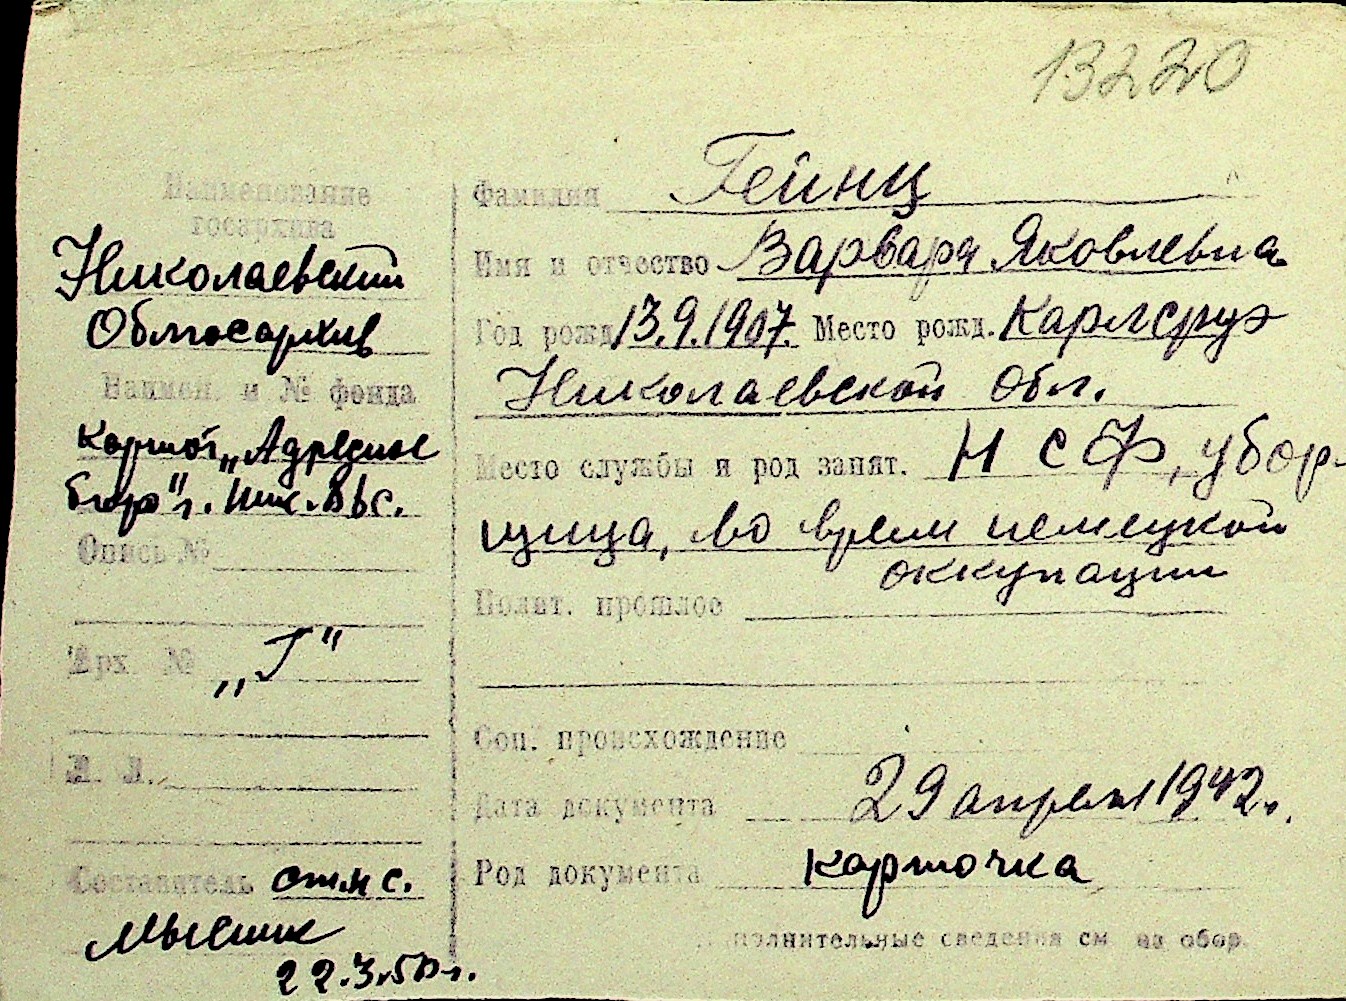 13220
Наименование
госархива
Николаевский
Облгосархив
Наимен. и № фонда
картот. „Адресное
бюро" г. Ник. ввс.
Опись №
Арх. № „Г"
Л. Л.
Составитель
22.3.50 г.
Фамилия Гейнц
Имя и отчество Варвара Яковлевна
Год рожд. 13.9.1907. Место рожд. Карлсруэ
Николаевской обл.
Место службы и род занят. Н С Ф, убор-
щица, во врем немецкой
оккупации
Полит. прошлое
Соц. происхождение
Дата документа 29 апреля 1942.
Род документа карточка
полнительные сведения см на обор.